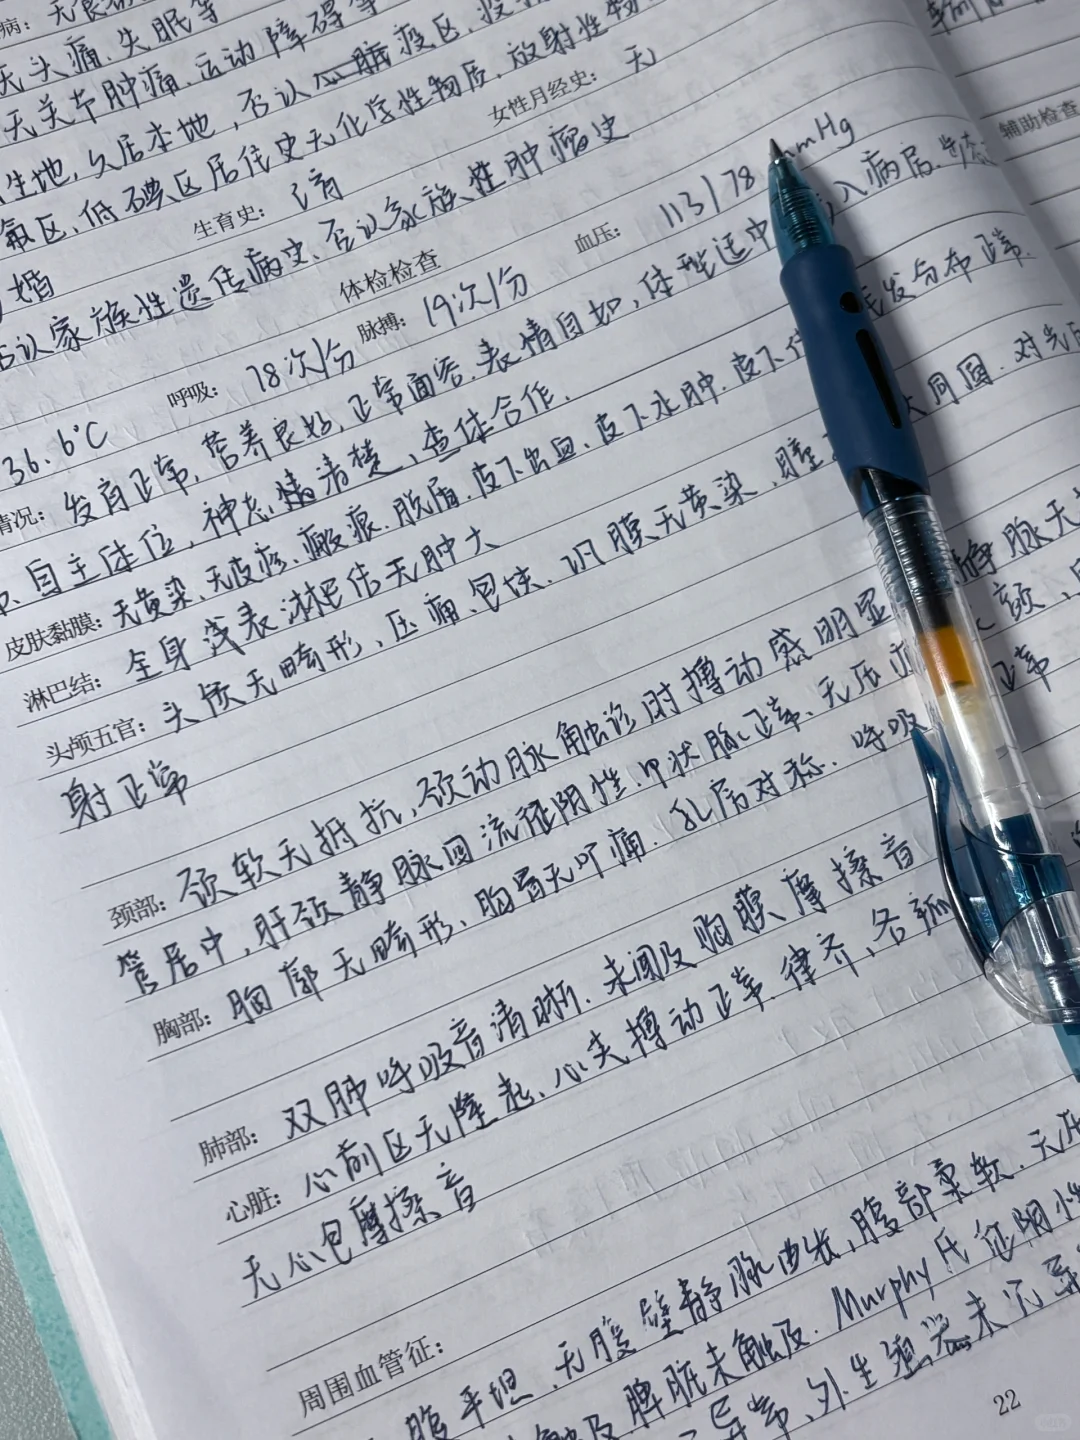 病：无食
无头痛、失眠等
辅
无关节肿痛、运动障碍等
生地，久居本地，否认心脏疫区、
辅助检查
氟区、低碘区居住史无化学性物质、放射性物
女性月经史： 无
婚 生育史： 1育
否认家族性遗传病史、否认家族性肿瘤史
体检检查
36.6℃ 呼吸： 18次/分 脉搏： 19次/分 血压： 113/78 mmHg
情况： 发育正常，营养良好，正常面容，表情自如，体型适中，入病房
自主体位，神志情清楚、查体合作.
皮肤黏膜： 无黄染、无皮疹、瘢痕、脱屑、皮下出血、皮下水肿、皮下 毛发分布正常.
淋巴结： 全身浅表淋巴结无肿大
头颅五官： 头颅无畸形、压痛、包块、巩膜无黄染、瞳 大同圆，对光
射正常
颈部： 颈软无抵抗，颈动脉触诊时搏动感明显 静脉无
管居中，肝颈静脉回流征阴性，甲状腺正常、无压
胸部： 胸廓无畸形、胸骨无叩痛，乳房对称，呼吸 正常
肺部： 双肺呼吸音清晰、未闻及胸膜摩擦音
心脏： 心前区无隆起、心尖搏动正常，律齐，各瓣
无心包摩擦音
周围血管征：
腹平坦、无腹壁静脉曲张，腹部柔软、无压
触及脾脏未触及，Murphy氏征阴性
异常、外生殖器未见异
22